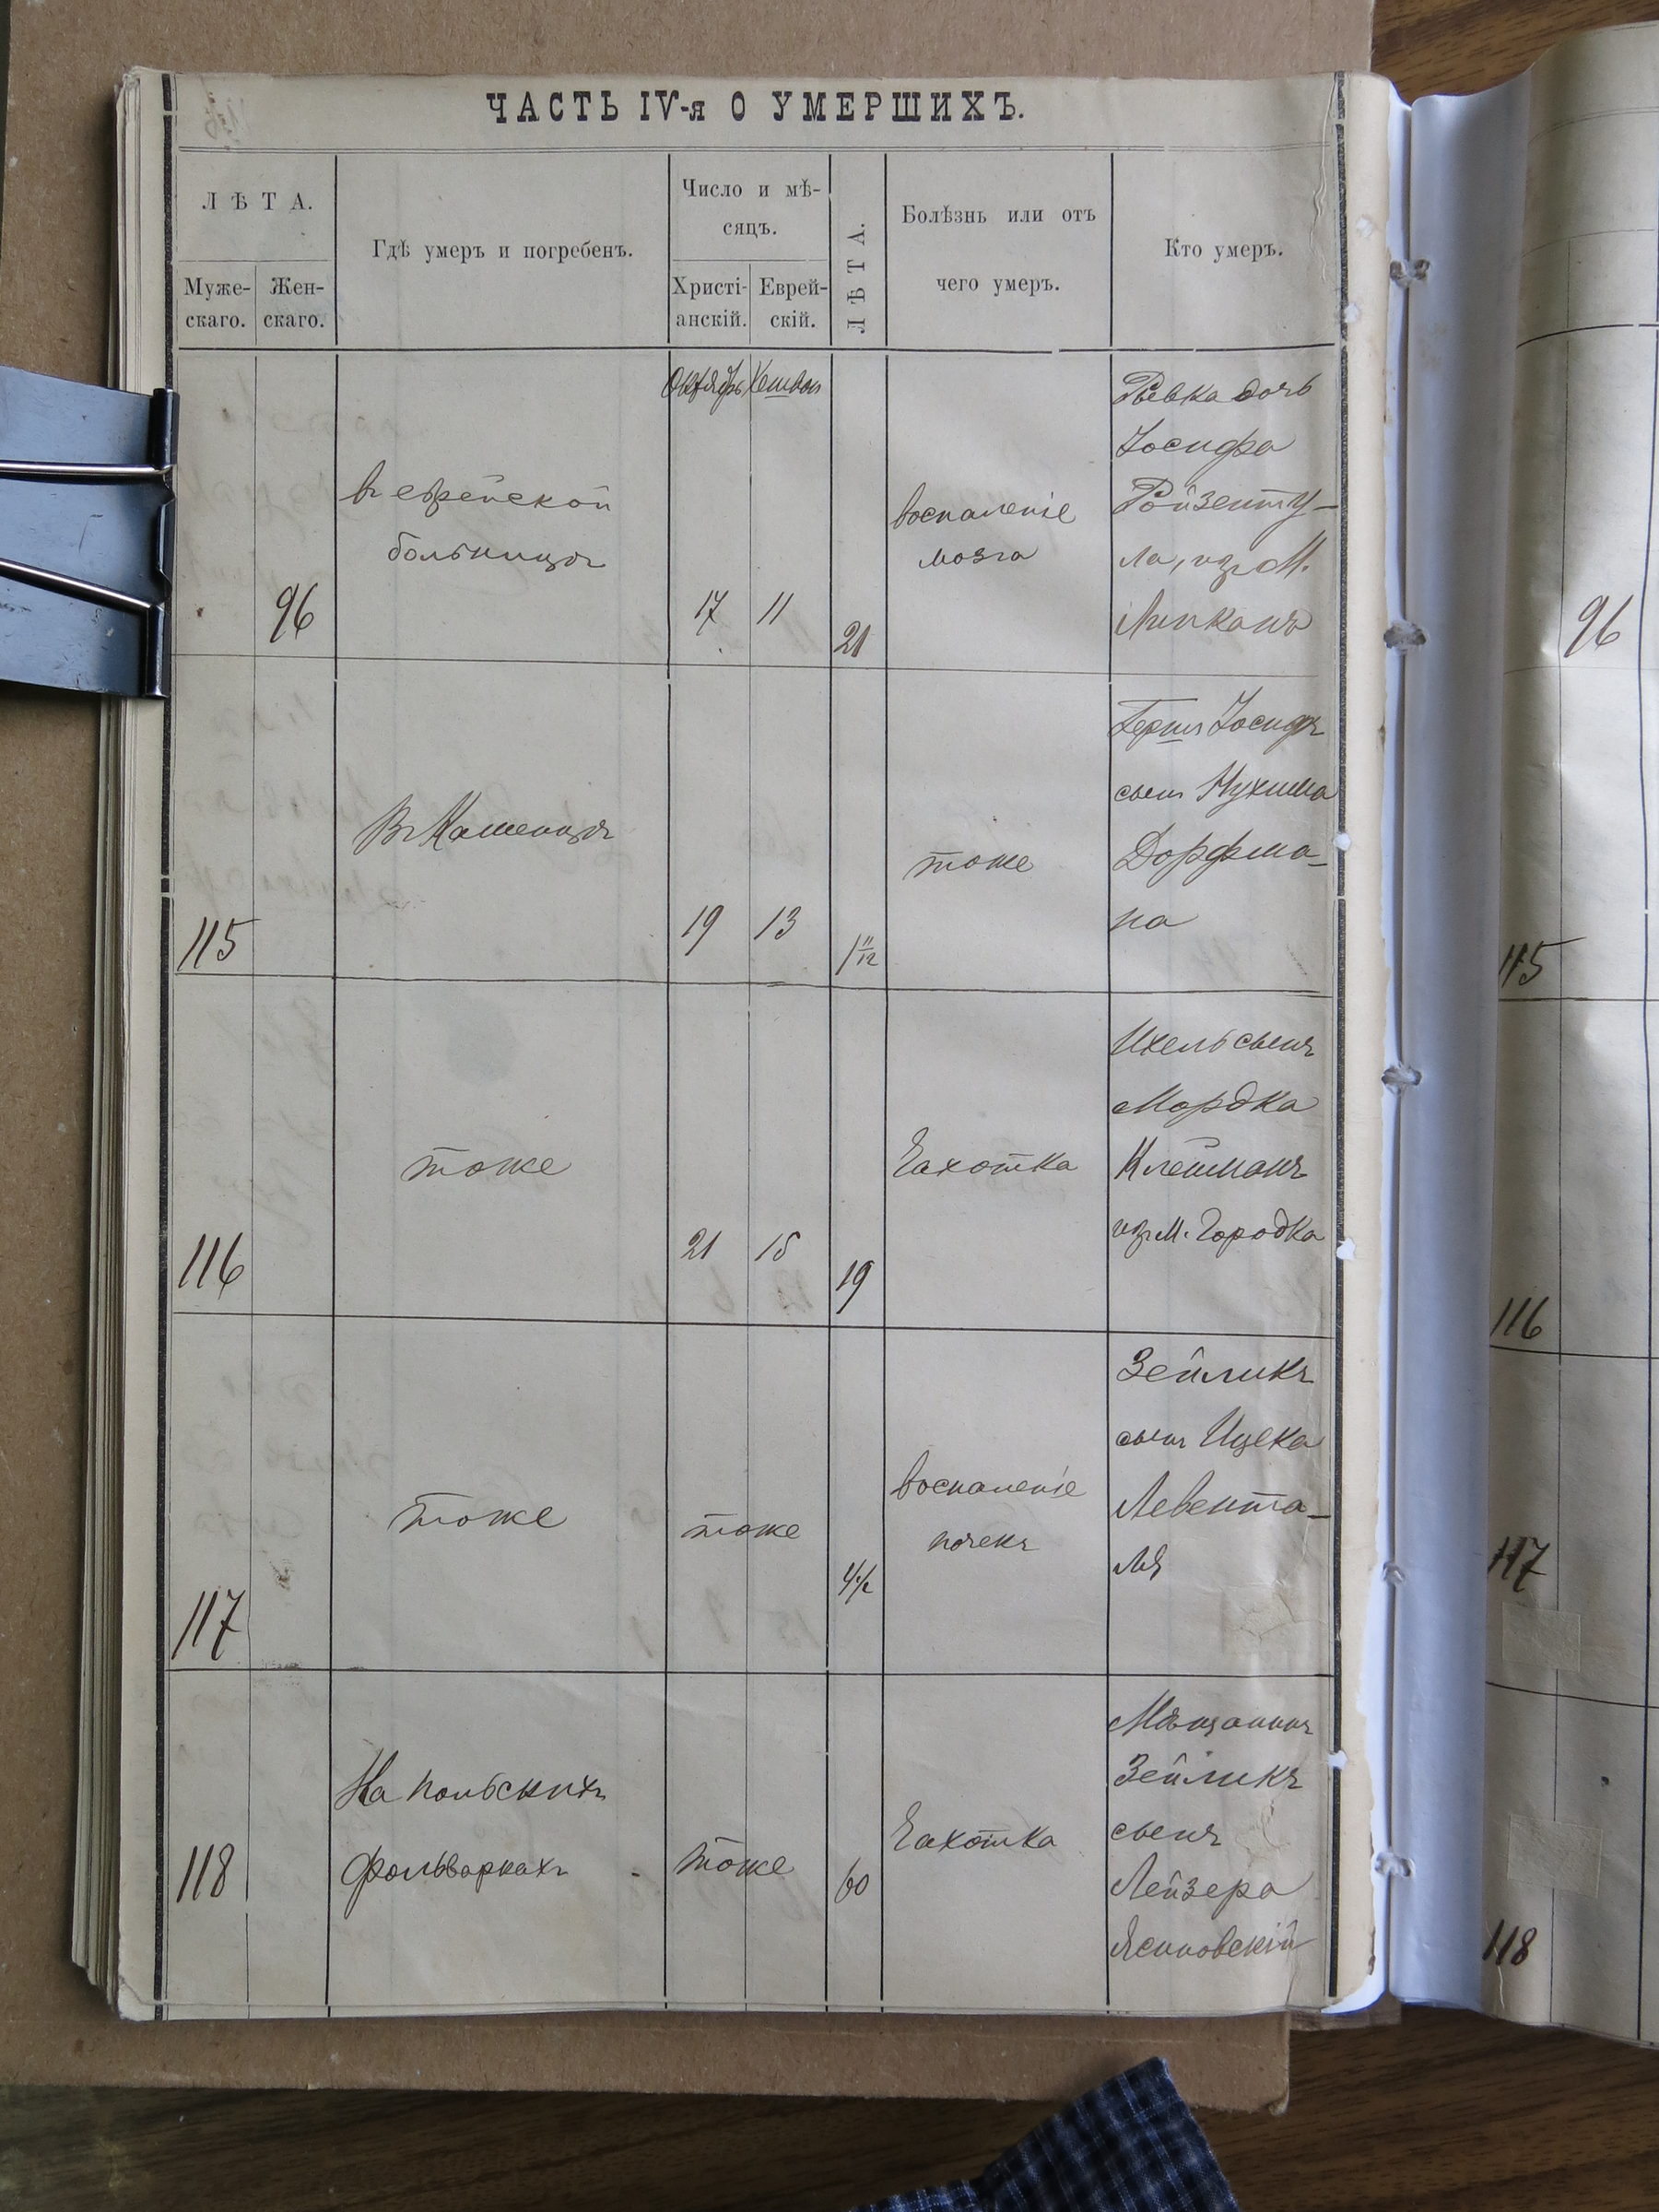 ЧАСТЬ IV-я О УМЕРШИХЪ.
ЛѢТА.
Муже-
скаго.
Жен-
скаго.
Гдѣ умеръ и погребенъ.
Число и мѣ-
сяцъ.
Христі-
анскій.
Еврей-
скій.
ЛѢТА.
Болѣзнь или отъ
чего умеръ.
Кто умеръ.
Октябрь Хешван
96
в еврейской
больницѣ
17 11
21
воспаленіе
мозга
Ревка дочь
Іосифа
Ройзенту-
ла, изъ М.
Липканъ
115
Въ Каменцѣ
19 13
1 11/12
тоже
Герш Іосифъ
сынъ Нухима
Дорфма-
на
116
тоже
21 15
19
Чахотка
Ихель сынъ
Мордка
Клейманъ
изъ М. Городка
117
тоже
тоже
4 1/2
воспаленіе
почекъ
Зейликъ
сынъ Ицека
Левента-
ля
118
На польскихъ
фольваркахъ
тоже
60
Чахотка
Мѣщанинъ
Зейликъ
сынъ
Лейзера
Ясиновскій
96
115
116
117
118